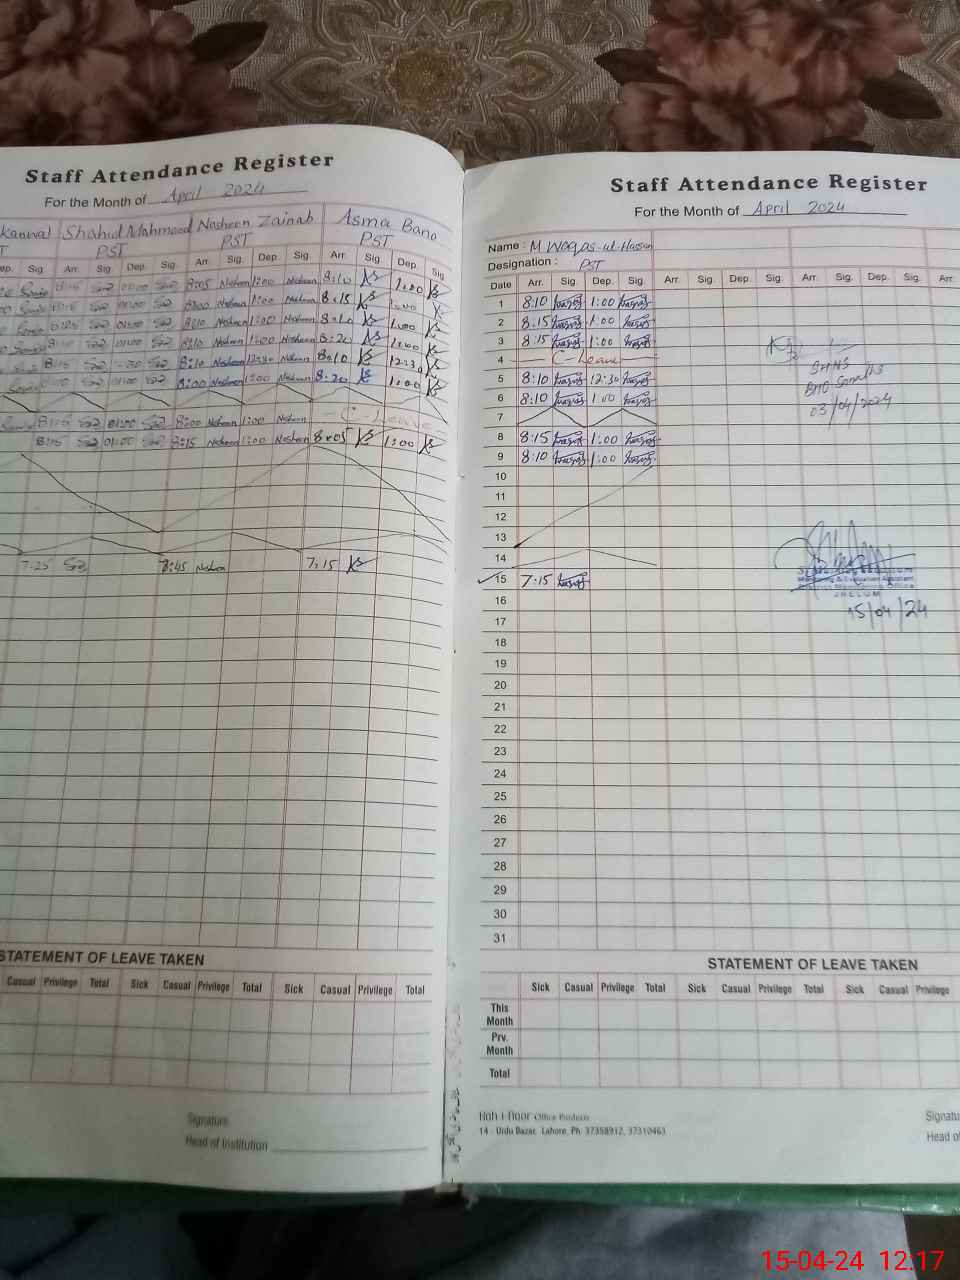 Staff Attendance Register
For the Month of April 2024
Shahid Mahmood Nosheen Zainab Asma Bano
PST PST PST
Dep. Sig. Arr. Sig. Dep. Sig. Arr. Sig. Dep. Sig. Arr. Sig. Dep. Sig.
8:05 Nosheen 1:00 Nosheen 8:10 1:00
8:00 Nosheen 1:00 Nosheen 8:15 1:00
8:10 Nosheen 1:00 Nosheen 8:10 1:00
8:10 Nosheen 1:00 Nosheen 8:20 1:00
8:10 Nosheen 12:30 Nosheen 8:10 12:30
8:00 Nosheen 1:00 Nosheen 8:20 1:00
8:15 01:00 8:00 Nosheen 1:00 Nosheen C-Leave
8:15 01:00 8:15 Nosheen 1:00 Nosheen 8:05 1:00
7:25 7:45 Nosheen 7:15
STATEMENT OF LEAVE TAKEN
Casual Privilege Total Sick Casual Privilege Total Sick Casual Privilege Total
Signature
Head of Institution
Staff Attendance Register
For the Month of April 2024
Name : M Waqas-ul-Hassan
Designation : PST
Date Arr. Sig. Dep. Sig. Arr. Sig. Dep. Sig. Arr. Sig. Dep. Sig. Arr.
1 8:10 Waqas 1:00 Waqas
2 8:15 Waqas 1:00 Waqas
3 8:15 Waqas 1:00 Waqas
4 C-Leave
5 8:10 Waqas 12:30 Waqas
6 8:10 Waqas 1:00 Waqas
7
8 8:15 Waqas 1:00 Waqas
9 8:10 Waqas 1:00 Waqas
10
11
12
13
14
15 7:15 Waqas
16
17
18
19
20
21
22
23
24
25
26
27
28
29
30
31
03/04/2024
Monitoring & Evaluation Assistant
District Monitoring Office
JHELUM
15/04/24
STATEMENT OF LEAVE TAKEN
Sick Casual Privilege Total Sick Casual Privilege Total Sick Casual Privilege
This Month
Prv. Month
Total
Koh-i-Noor Office Products
14 - Urdu Bazar, Lahore. Ph: 37358912, 37310463
Head of
15-04-24 12:17